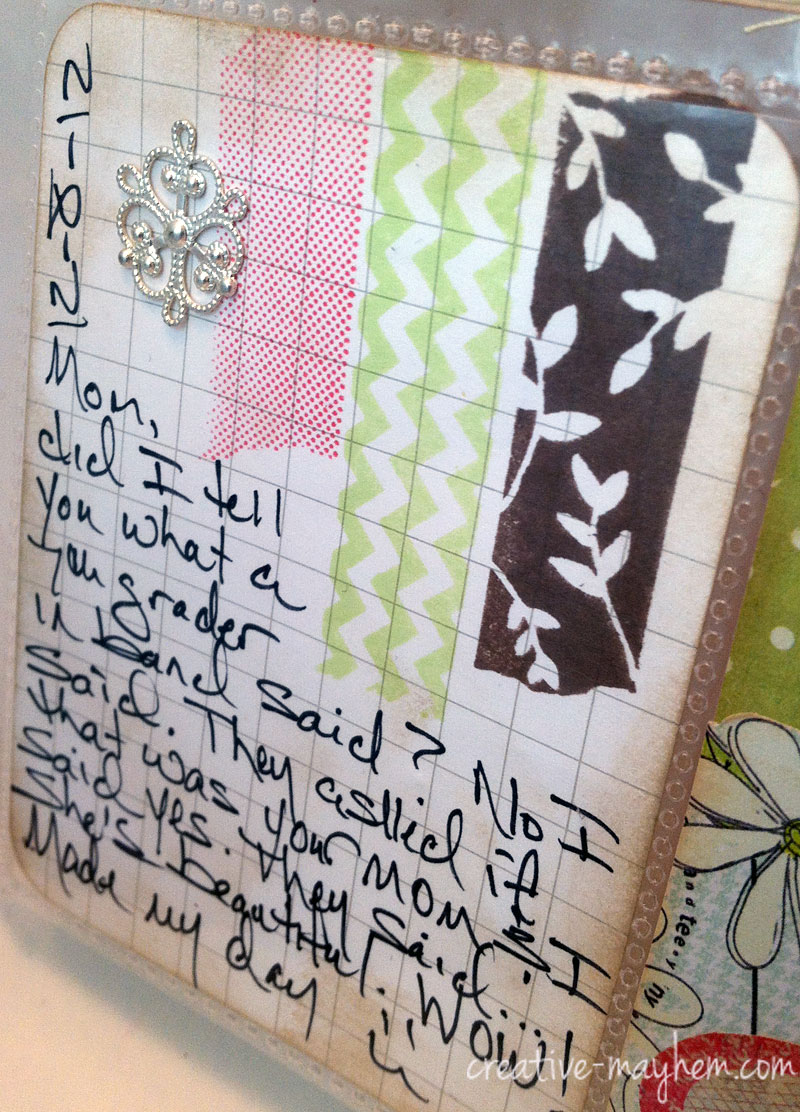 12-8-12
Mom,
did I tell
you what a
grader
in band said? No I
said. They asked if
that was your mom. I
said yes. They said
She's beautiful. Wow!
Made my day
and tee
creative-mayhem.com